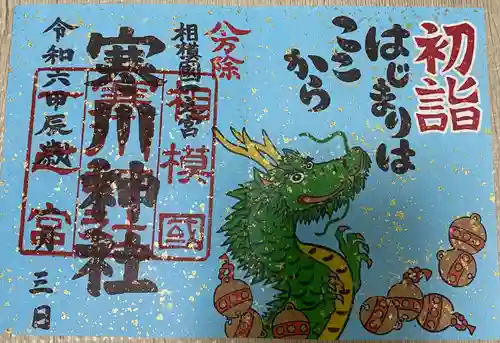 初詣
はじまりは
ここ
から
八方除
相模國一之宮
寒川神社
相模國
一之宮
令和六甲辰歳
三日